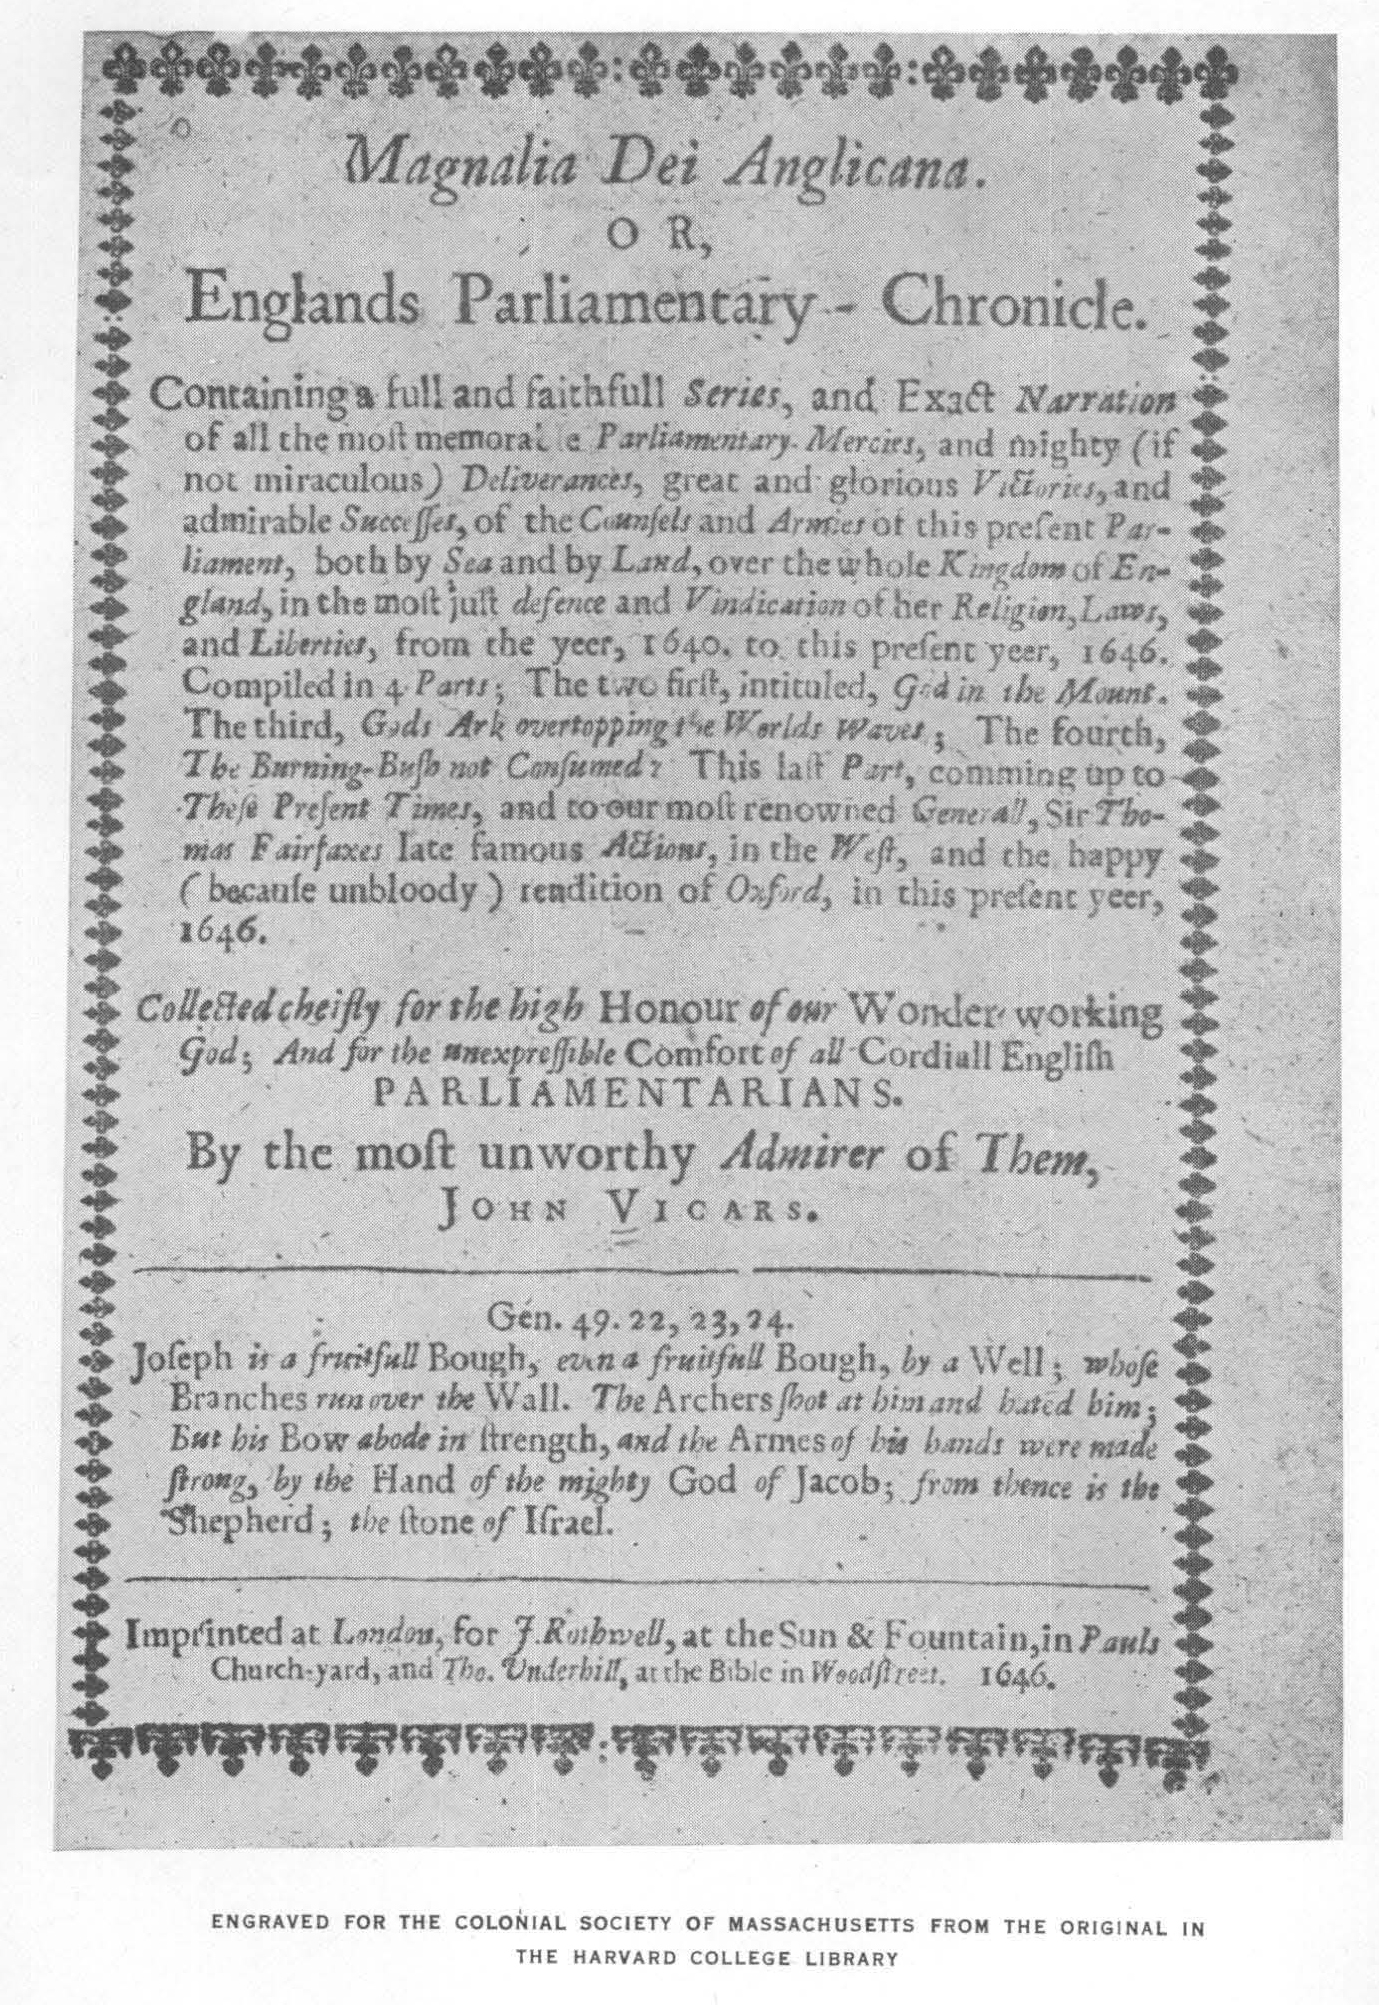 Magnalia Dei Anglicana.
OR,
Englands Parliamentary-Chronicle.
Containing a full and faithfull Series, and Exact Narration
of all the moſt memorable Parliamentary-Mercies, and mighty (if
not miraculous) Deliverances, great and glorious Victories, and
admirable Succeſſes, of the Counſels and Armies of this preſent Par-
liament, both by Sea and by Land, over the whole Kingdom of En-
gland, in the moſt juſt defence and Vindication of her Religion, Laws,
and Liberties, from the yeer, 1640. to this preſent yeer, 1646.
Compiled in 4 Parts; The two firſt, intituled, God in the Mount.
The third, Gods Ark overtopping the Worlds Waves; The fourth,
The Burning-Buſh not Conſumed: This laſt Part, comming up to
Theſe Preſent Times, and to our moſt renowned Generall, Sir Tho-
mas Fairfaxes late famous Actions, in the Weſt, and the happy
(becauſe unbloody) rendition of Oxford, in this preſent yeer,
1646.
Collected cheifly for the high Honour of our Wonder-working
God; And for the unexpreſſible Comfort of all Cordiall Engliſh
PARLIAMENTARIANS.
By the moſt unworthy Admirer of Them,
JOHN VICARS.
Gen. 49. 22, 23, 24.
Joſeph is a fruitfull Bough, even a fruitfull Bough, by a Well; whoſe
Branches run over the Wall. The Archers ſhot at him and hated him;
But his Bow abode in ſtrength, and the Armes of his hands were made
ſtrong, by the Hand of the mighty God of Jacob; from thence is the
Shepherd; the ſtone of Iſrael.
Imprinted at London, for J. Rothwell, at the Sun & Fountain, in Pauls
Church-yard, and Tho. Underhill, at the Bible in Woodſtreet. 1646.
ENGRAVED FOR THE COLONIAL SOCIETY OF MASSACHUSETTS FROM THE ORIGINAL IN
THE HARVARD COLLEGE LIBRARY